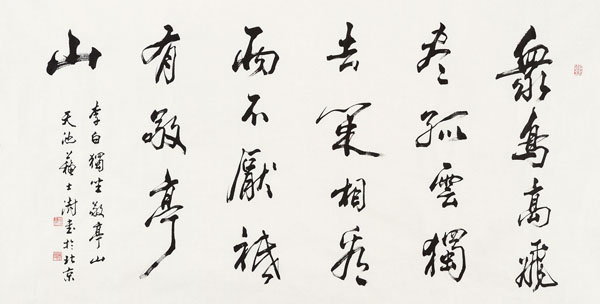 衆鳥高飛
盡孤雲獨
去閑相看
兩不厭祇
有敬亭
山
李白獨坐敬亭山
天池蘇士澍書於北京